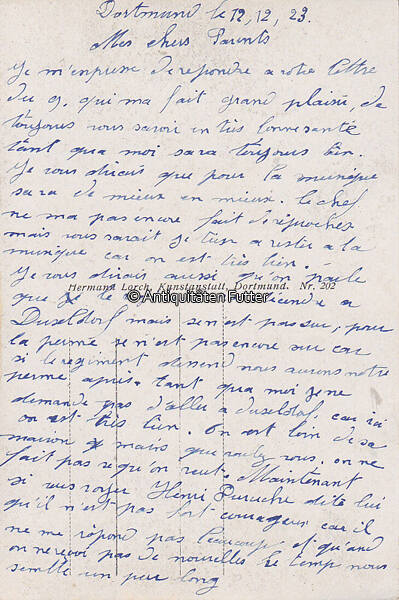 Dortmund le 12, 12, 23.
Mes chers Parents
Je m'enpresse de repondre a votre lettre
du 9, qui ma fait grand plaisir, de
toujours vous savoir en très bonne santé
tant qua moi sara toujours bien.
Je vous dirais que pour la musique
sara de mieux en mieux. le chef
ne ma pas encore fait de reproches
mais vous savait je tien a rester a la
musique car on est très bien.
Je vous dirais aussi qu'on parle
Hermann Lorch, Kunstanstalt, Dortmund. Nr. 202
© Antiquitäten Futter
que le a
Duseldorf mais se n'est pas sur, pour
la perme se n'est pas encore sur car
si le regiment dessend nous aurons notre
perme après. tant qua moi je ne
demande pas d'aller a duseldof. car ici
on est très bien. On est loin de sa
mais que voulez vous. on ne
fait pas se qu'on veut. Maintenant
si vous voyer Henri dite lui
qu'il n'est pas fort courageux car il
ne me répond pas beaucoup et quand
on ne reçoi pas de nouvelles le temp nous
semble un peu long